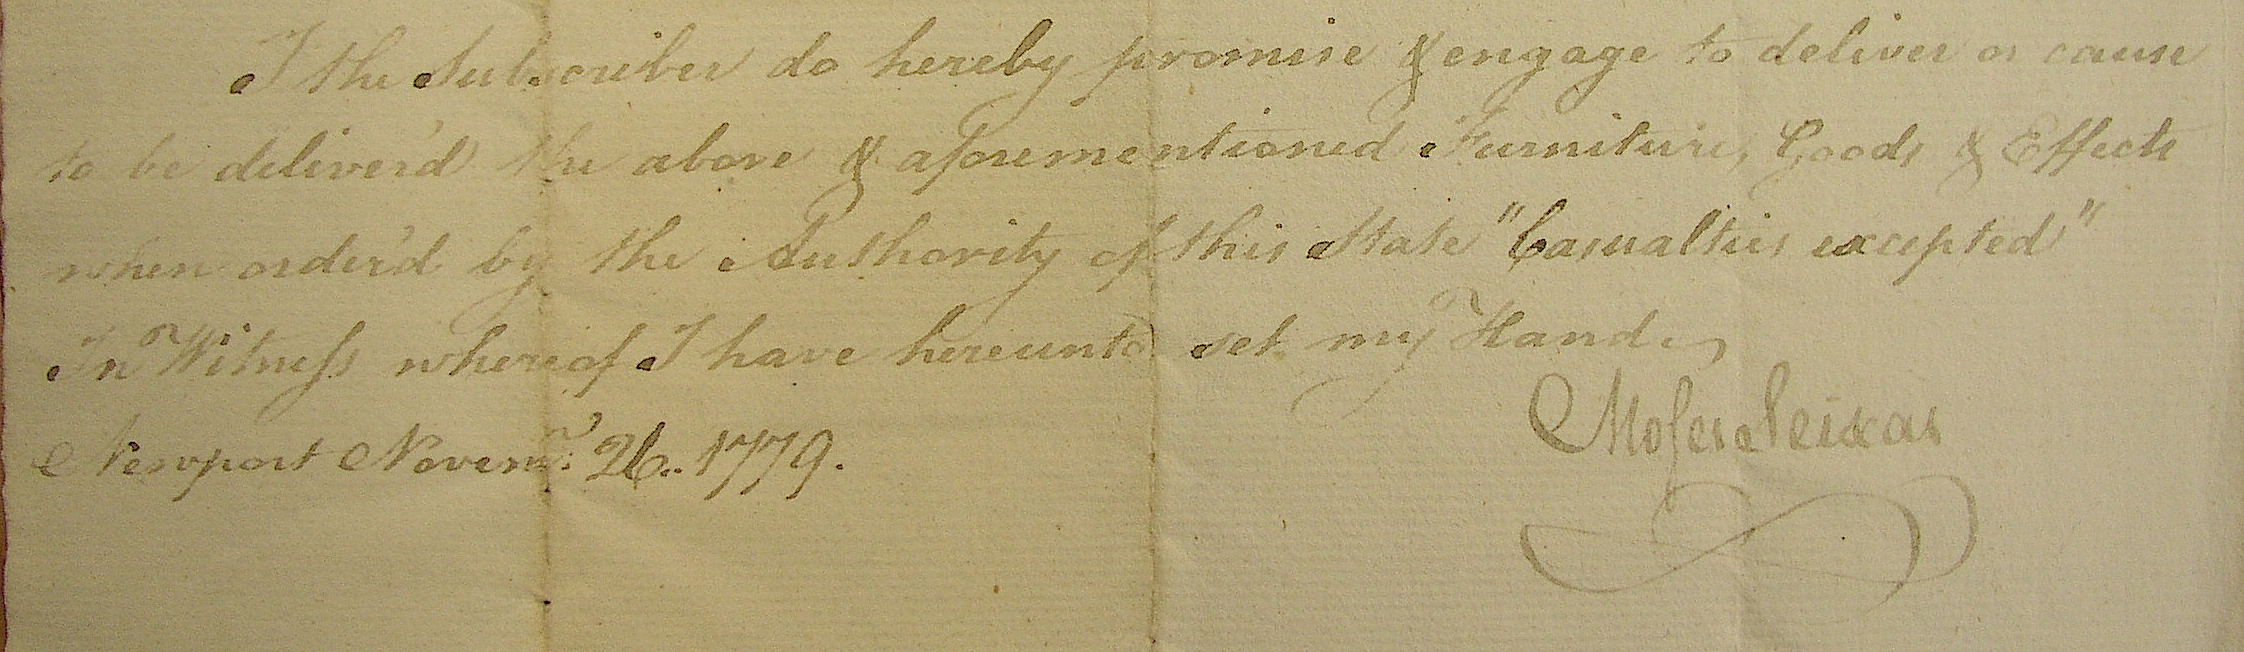 I the Subscriber do hereby promise & engage to deliver or cause
to be deliver'd the above & aforementioned Furniture, Goods & Effects
when order'd by the Authority of this State "Casualties excepted"
In Witneſs whereof I have hereunto set my Hand.
Newport Novemr. 26.. 1779.
Moſes Seixas